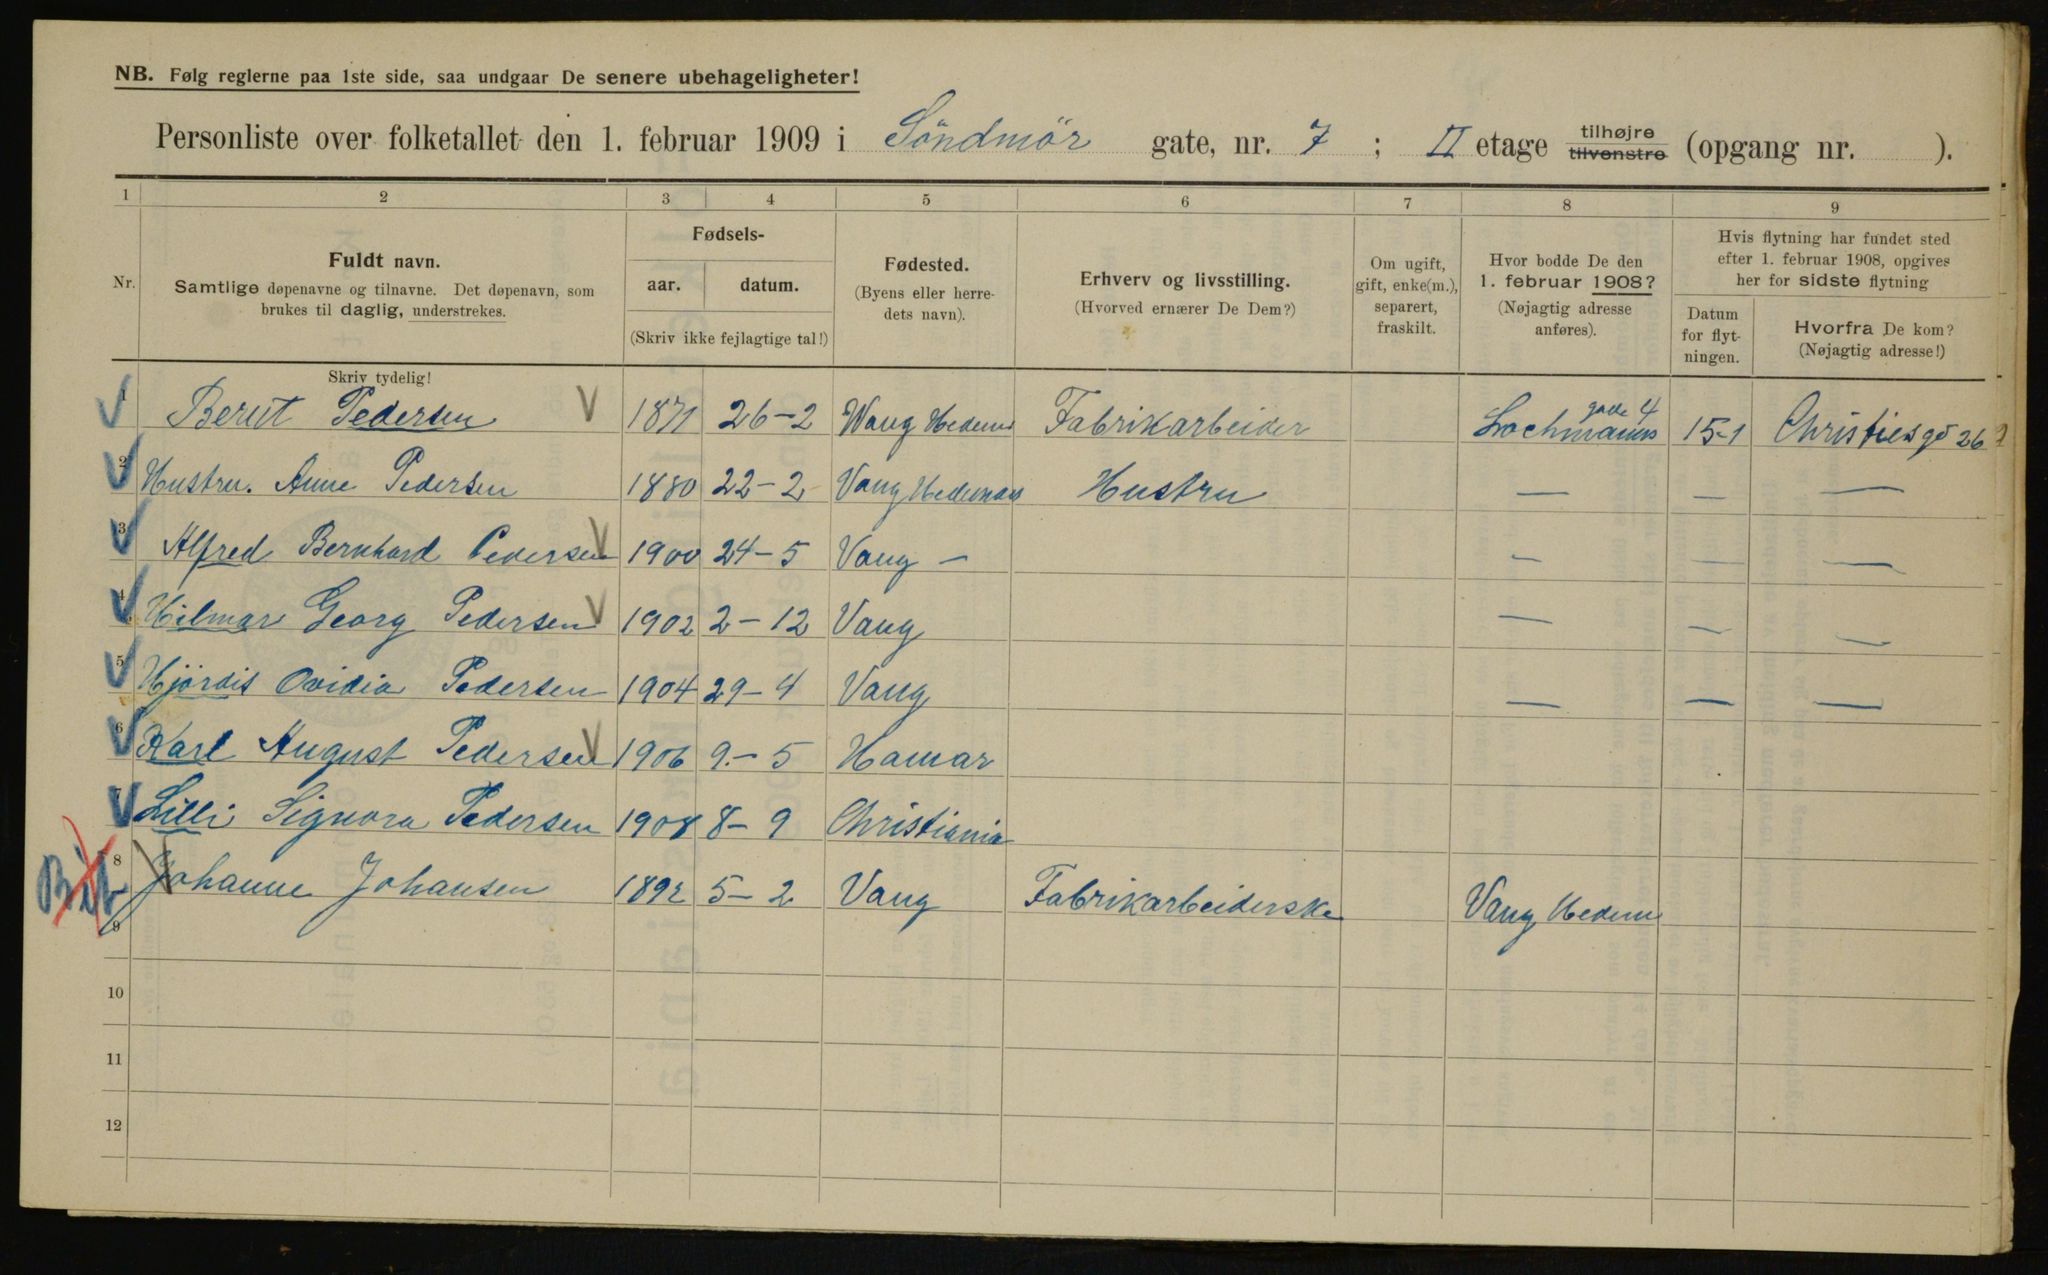 NB. Følg reglerne paa 1ste side, saa undgaar De senere ubehageligheter!
Personliste over folketallet den 1. februar 1909 i Söndmör gate, nr. 7 ; II etage tilhøjre tilvenstre (opgang nr. ).
1 2 3 4 5 6 7 8 9
Nr.
Fuldt navn.
Samtlige døpenavne og tilnavne. Det døpenavn, som
brukes til daglig, understrekes.
Fødsels-
aar. datum.
(Skriv ikke fejlagtige tal!)
Fødested.
(Byens eller herre-
dets navn).
Erhverv og livsstilling.
(Hvorved ernærer De Dem?)
Om ugift,
gift, enke(m.),
separert,
fraskilt.
Hvor bodde De den
1. februar 1908?
(Nøjagtig adresse
anføres).
Hvis flytning har fundet sted
efter 1. februar 1908, opgives
her for sidste flytning
Datum
for flyt-
ningen.
Hvorfra De kom?
(Nøjagtig adresse!)
Skriv tydelig!
1 Bernt Pedersen 1871 26-2 Wang Hedem Fabrikarbeider Lochmanns gade 4 15-1 Christiesgd 26
2 Hustru. Anne Pedersen 1880 22-2 Vang Hedemark Hustru — — —
3 Alfred Bernhard Pedersen 1900 24-5 Vang — — — —
4 Hilmar Georg Pedersen 1902 2-12 Vang — — —
5 Hjördis Ovidia Pedersen 1904 29-4 Vang — — —
6 Karl August Pedersen 1906 9.-5 Hamar
7 Lilli Signora Pedersen 1908 8-9 Christiania
8 Johanne Johansen 1892 5-2 Vang Fabrikarbeiderske Vang Hedem
9
10
11
12